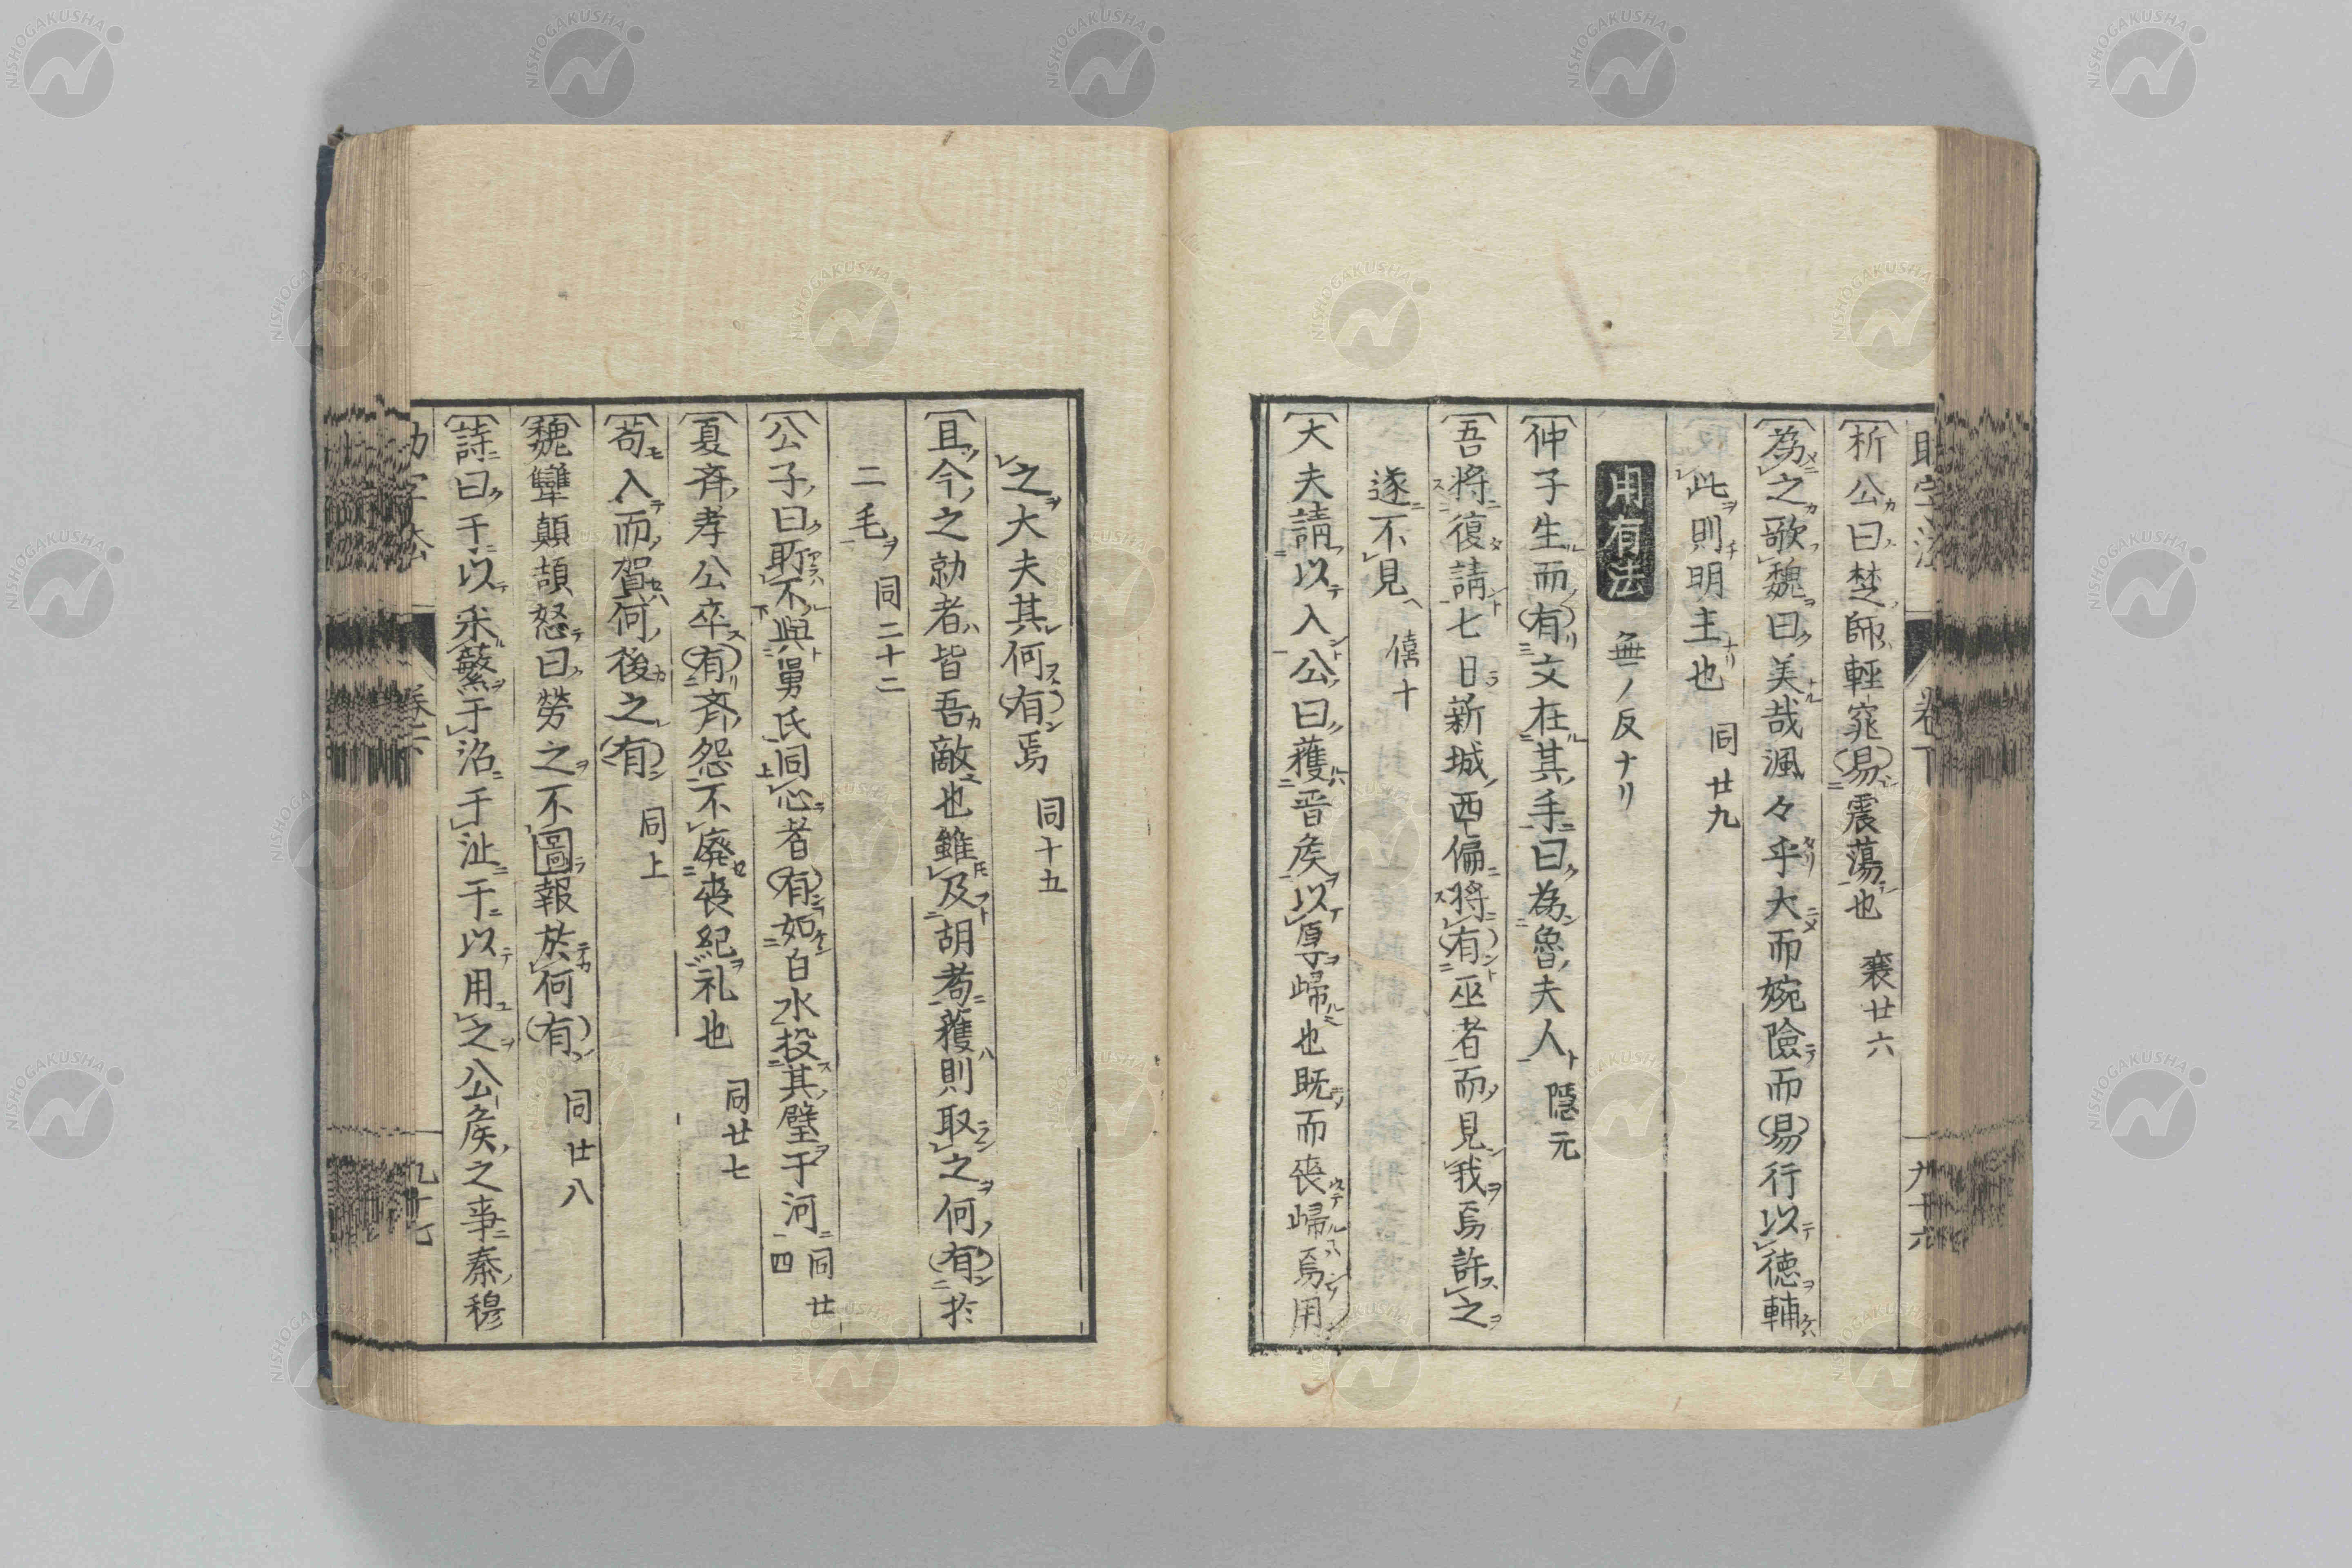 析公曰楚師輕窕易震蕩也 襄廿六
為之歌魏曰美哉渢々乎大而婉險而易行以德輔
此則明主也 同廿九
用有法 無ノ反ナリ
仲子生而有文在其手曰為魯夫人 隱元
吾將復請七日新城西偏將有巫者而見我焉許之
遂不見 僖十
大夫請以入公曰獲晋矦以厚歸也既而喪歸焉用
九十六
之大夫其何有焉 同十五
且今之勍者皆吾敵也雖及胡耉獲則取之何有於
二毛 同二十二
公子曰所不與舅氏同心者有如白水投其璧于河 同廿四
夏齊孝公卒有齊怨不廢喪紀礼也 同廿七
苟入而賀何後之有 同上
魏犨顛頡怒曰勞之不圖報於何有 同廿八
詩曰于以采蘩于沼于沚于以用之公矦之事秦穆
九十七
NISHOGAKUSHA